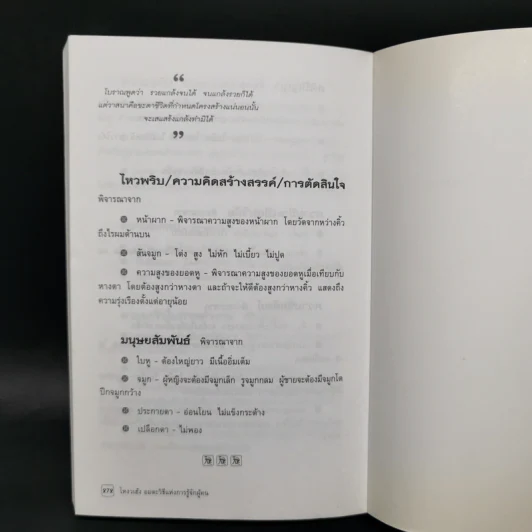 “
โบราณพูดว่า รวยแกล้งจนได้ จนแกล้งรวยก็ได้
แต่วาสนาคือชะตาชีวิตที่กำหนดโครงสร้างแน่นอนนั้น
จะเสแสร้งแกล้งทำมิได้
”
ไหวพริบ/ความคิดสร้างสรรค์/การตัดสินใจ
พิจารณาจาก
หน้าผาก - พิจารณาความสูงของหน้าผาก โดยวัดจากหว่างคิ้ว
ถึงไรผมด้านบน
สันจมูก - โด่ง สูง ไม่หัก ไม่เบี้ยว ไม่ปูด
ความสูงของยอดหู - พิจารณาความสูงของยอดหูเมื่อเทียบกับ
หางตา โดยต้องสูงกว่าหางตา และถ้าจะให้ดีต้องสูงกว่าหางคิ้ว แสดงถึง
ความรุ่งเรืองตั้งแต่อายุน้อย
มนุษยสัมพันธ์ พิจารณาจาก
ใบหู - ต้องใหญ่ยาว มีเนื้ออิ่มเต็ม
จมูก - ผู้หญิงจะต้องมีจมูกเล็ก รูจมูกกลม ผู้ชายจะต้องมีจมูกโต
ปีกจมูกกว้าง
ประกายตา - อ่อนโยน ไม่แข็งกระด้าง
เปลือกตา - ไม่พอง
โหงวเฮ้ง และวิธีแห่งการรู้จักผู้คน